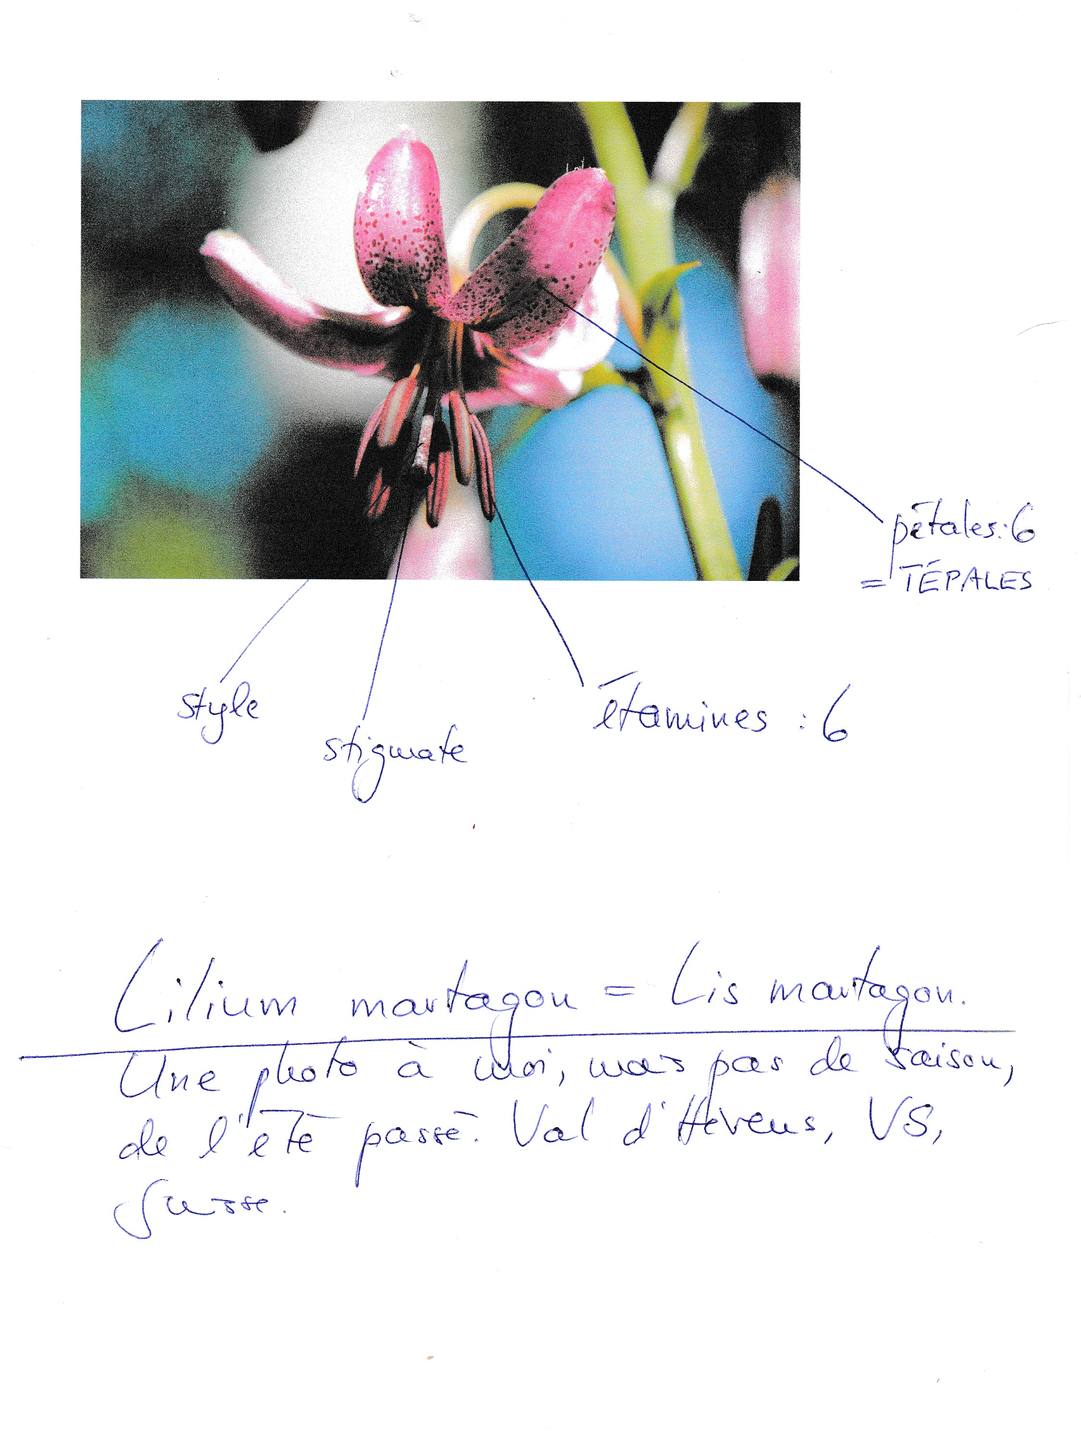 pétales: 6
= TÉPALES
style
stigmate
étamines : 6
Lilium martagon = Lis martagon.
Une photo à moi, mais pas de saison,
de l'été passé. Val d'Hérens, VS,
Suisse.